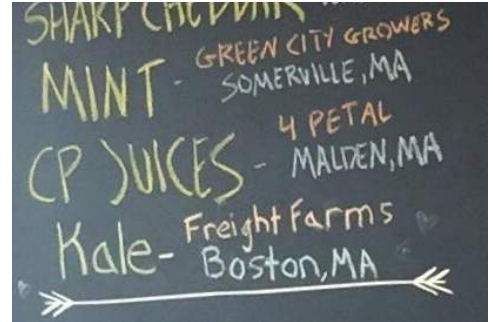 SHARP CHEDDAR
MINT - GREEN CITY GROWERS
SOMERVILLE, MA
CP JUICES - 4 PETAL
MALDEN, MA
Kale - Freight Farms
Boston, MA